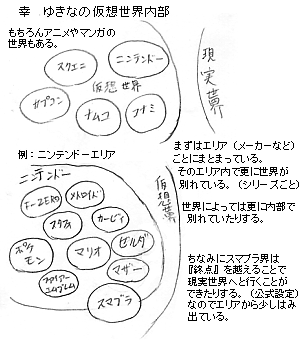 幸　ゆきなの仮想世界内部
もちろんアニメやマンガの
世界もある。
スクエニ
ニンテンドー
仮想世界
カプコン
ナムコ
コナミ
現実世界
まずはエリア（メーカーなど）
ごとにまとまっている。
そのエリア内で更に世界が
別れている。（シリーズごと）
世界によっては更に内部で
別れていたりする。
ちなみにスマブラ界は
『終点』を越えることで
現実世界へと行くことが
できたりする。（公式設定）
なのでエリアから少しはみ
出ている。
例：ニンテンドーエリア
ニンテンドー
仮想世界
F-ZERO
メトロイド
カービィ
ポケモン
マリオ
ゼルダ
マザー
ファイアーエムブレム
スマブラ